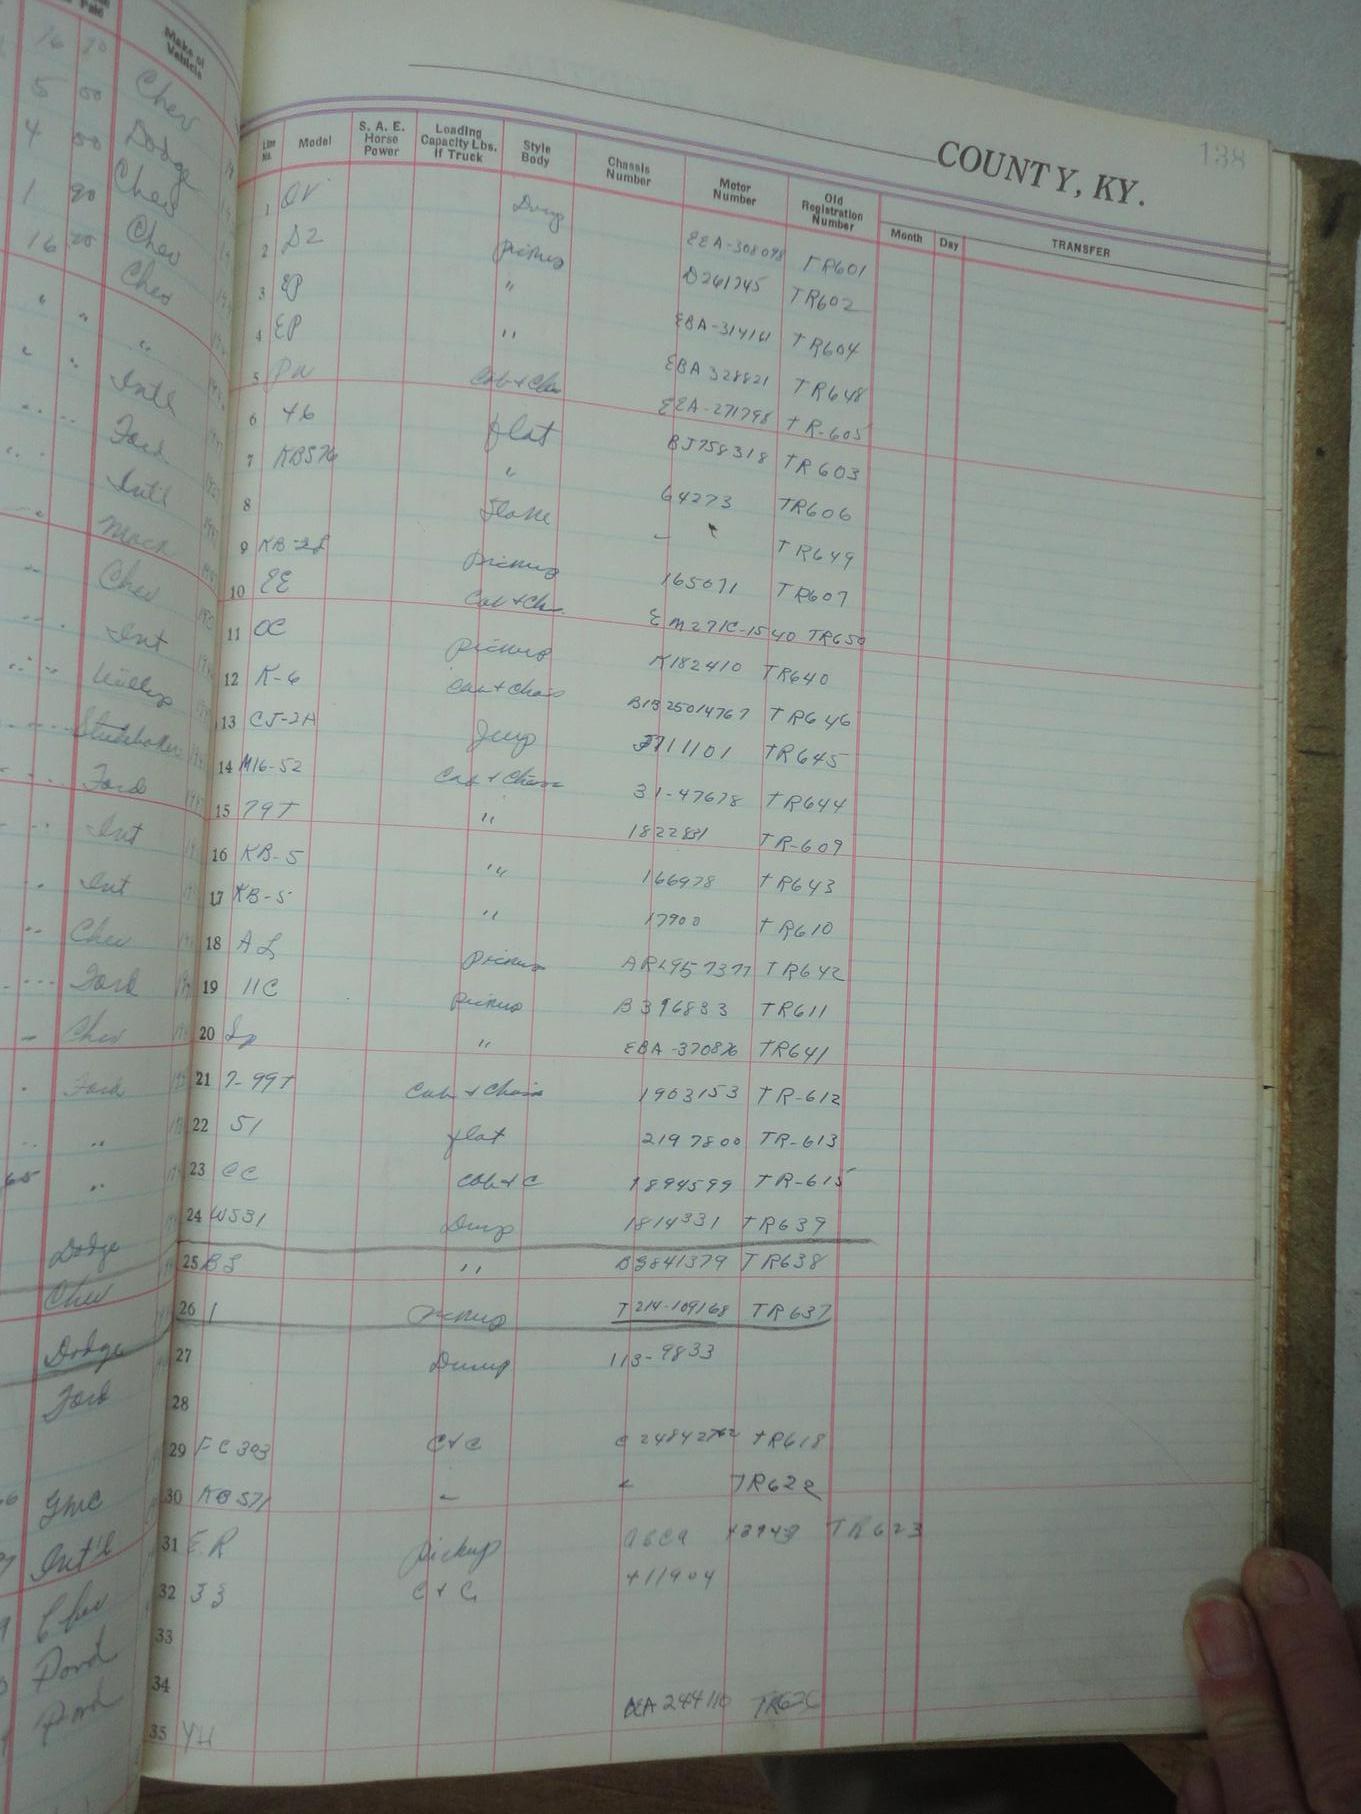 COUNTY, KY.
138
Paid
Make of Vehicle
Line No.
Model
S. A. E. Horse Power
Loading Capacity Lbs. If Truck
Style Body
Chassis Number
Motor Number
Old Registration Number
Month
Day
TRANSFER
16 20 Chev
5 00 Dodge
4 00 Chev
1 90 Chev
16 20 Chev
"
Intl
Ford
Intl
Mack
Chev
Int
Willys
Studebaker
Ford
Int
Int
Chev
Ford
Chev
Ford
"
"
Dodge
Chev
Dodge
Ford
GMC
Int'l
Chev
Ford
Ford
1 OV Dump EEA-308098 TR601
2 D2 pickup D261745 TR602
3 EP " EBA-314161 TR604
4 EP " EBA 328821 TR648
5 Cab + Chas EEA-271798 TR-605
6 46 flat BJ758318 TR603
7 KBS76 " 64273 TR606
8 TR649
9 pickup 165071 TR607
10 EE Cab + Cha. EM271C-1540 TR650
11 OC pickup K182410 TR640
12 K-6 Cab + Chas B1B25014767 TR646
13 CJ-2A Jeep 11101 TR645
14 M16-52 Cab + Chass 31-47678 TR644
15 79T " TR-609
16 KB-5 " 166978 TR643
17 KB-5 " 17900 TR610
18 AL pickup TR642
19 11C pickup B396833 TR611
20 " EBA-370876 TR641
21 7-99T Cab + Chass 1903153 TR-612
22 51 flat 2197800 TR-613
23 CC Cab + C 1894599 TR-615
24 WS31 Dump 1814331 TR639
25 BS " BS841379 TR638
26 1 pickup T214-109168 TR637
27 Dump 113-9833
28
29 C+C TR618
30 KBS71 TR622
31 ER pickup TR623
32 C + C +11904
33
34
244110
35 YH